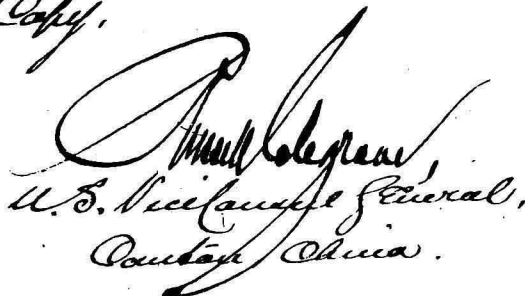 Copy.
U.S. Vice Consul General,
Canton China.